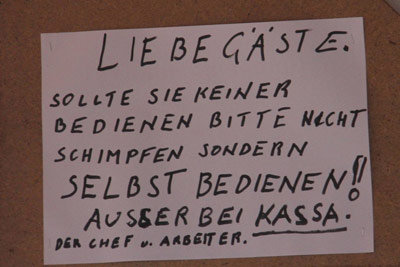 LIEBE GÄSTE.
SOLLTE SIE KEINER
BEDIENEN BITTE NICHT
SCHIMPFEN SONDERN
SELBST BEDIENEN!!
AUSSER BEI KASSA.
DER CHEF u. ARBEITER.